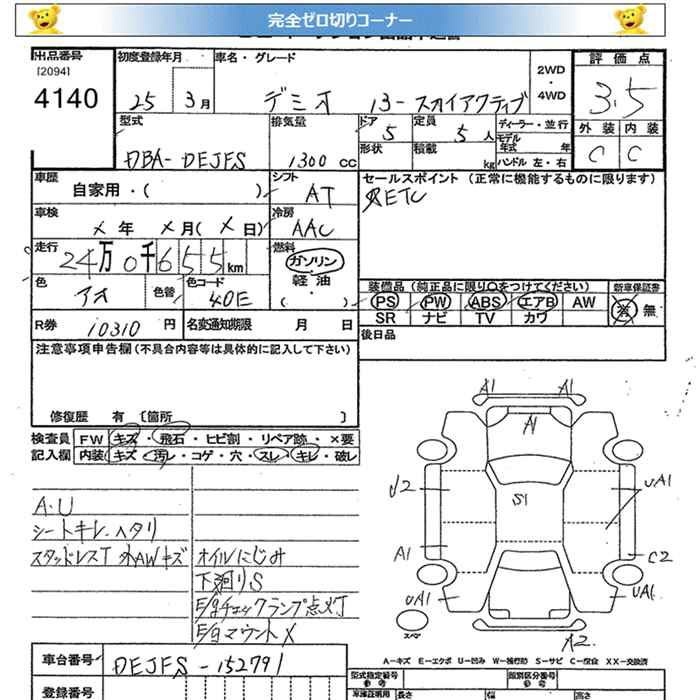 完全ゼロ切りコーナー
出品番号
[2094]
4140
初度登録年月
25 3月
車名・グレード
デミオ 13-スカイアクティブ
2WD
・
4WD
評価点
3.5
外装 内装
C C
型式
DBA-DEJFS
排気量
1300 cc
ドア
5
形状
定員
5人
積載
kg
ディーラー・並行
モデル
年式 年
ハンドル 左・右
車歴
自家用・( )
シフト
AT
セールスポイント (正常に機能するものに限ります)
ETC
車検
X 年 X 月( X 日)
冷房
AAC
走行
24万0千655km
燃料
ガソリン
軽油
( )
色
アオ
色替
色コード
40E
装備品(純正品に限り○をつけてください)
新車保証書
PS PW ABS エアB AW
SR ナビ TV カワ
有・無
R券 10310 円
名変通知期限 月 日
後日品
注意事項申告欄(不具合内容等は具体的に記入して下さい)
修復歴 有 〔箇所 〕
検査員
記入欄
FW キズ・飛石・ヒビ割・リペア跡・×要
内装 キズ・汚レ・コゲ・穴・スレ・キレ・破レ
A・U
シートキレ・ヘタリ
スタッドレスT 外AWキズ
オイルにじみ
下廻りS
E/gチェックランプ点灯
E/gマウントX
A1 A1
A1
S1
J2
UA1
A1
C2
UA1
UA1
A2
スペア
A-キズ E-エクボ U-凹み W-補修跡 S-サビ C-腐食 XX-交換済
車台番号
DEJFS-152791
登録番号
型式指定番号
類別区分番号
車庫証明用
長さ
幅
高さ